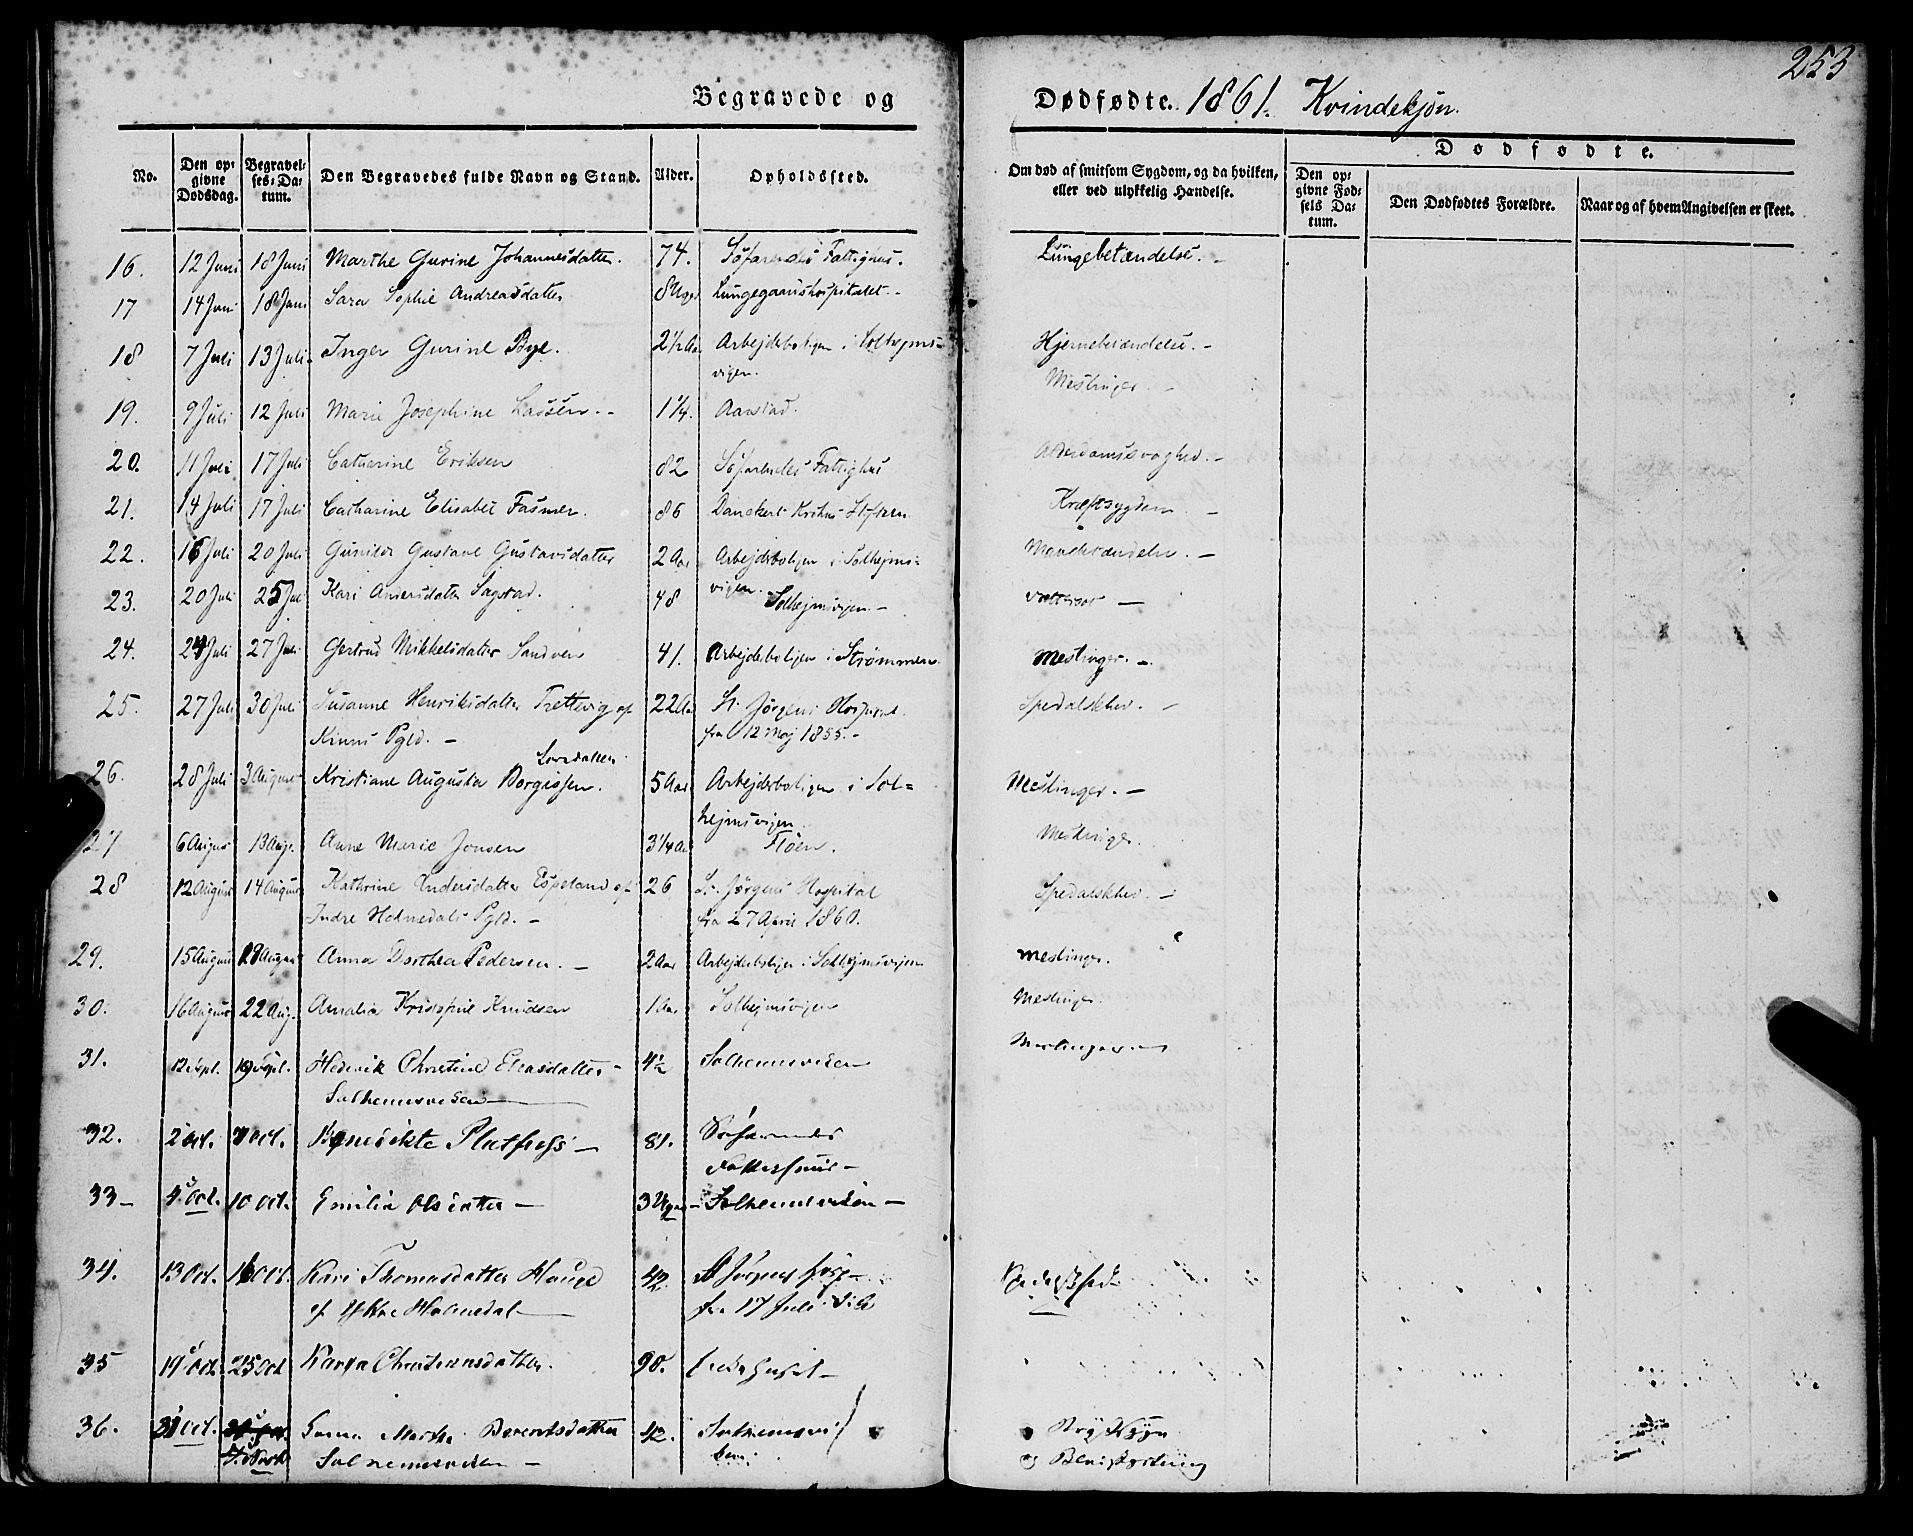 253
Begravede og Dødfødte. 1861. Kvindekjøn.
No. Den opgivne Dødsdag. Begravelses-Datum. Den Begravedes fulde Navn og Stand. Alder. Opholdssted. Om død af smitsom Sygdom, og da hvilken, eller ved ulykkelig Hændelse. Dødfødte. Den opgivne Fødsels Datum. Den Dødfødtes Forældre. Naar og af hvem Angivelsen er skeet.
16. 12 Juni 18 Juni Marthe Gurine Johannesdatter. 74. Søfarendes Fattighus. Lungebetændelse. -
17 14 Juni 18 Juni Sara Sophie Andreasdatter 8 Uger Lungegaardshospitalet. -
18 7 Juli 13 Juli Inger Gurine Bye. 2½ Aar Arbejderboligen i Solhejms-
vigen. Hjernebetændelse. -
19. 9 Juli 12 Juli Marie Josephine Lassen. - 1¼. Aarstad. Meslinger. -
20. 11 Juli 17 Juli Catharine Eriksen 82 Søfarendes Fattighus Alderdomssvaghed. -
21. 14 Juli 17 Juli Catharine Elisabet Fasmer. 86 Danckert Krohns Stiftelse Kræftsygdom -
22. 16 Juli 20 Juli Gustave Gustavsdatter 2 Aar Arbejderboligen i Solhejms-
vigen. -
23. 20 Juli 25 Juli Kari Andersdatter Sagstad. 48 Solhejmsvigen. - Vattersot -
24. 24 Juli 27 Juli Gertrud Mikkelsdatter Sandven 41. Arbejderboligen i Strømmen. Meslinger. -
25. 27 Juli 30 Juli Susanne Henriksdatter Trettevig af 22 Aar St. Jørgens Hospital Spedalskhed. -
Kinns Pgld. - fra 12 Maj 1855. -
Larsdatter
26. 28 Juli 3 August Kristiane Augusta Borgissen. 5 Aar Arbejderboligen i Sol-
hejmsvigen Meslinger. -
27 6 August 13 Aug. Anne Marie Jonsen 3¼ Aar Fløen. Meslinger.
28 12 August 14 August Kathrine Andersdatter Espeland af 26 St. Jørgens Hospital Spedalskhed. -
Indre Holmedals Pgld. - fra 27 April 1860.
29. 15 August 19 August Anna Dorthea Pedersen. - 2 Aar Arbejderboligen i Solhejmsvigen Meslinger.
30. 16 August 22 Aug. Amalia Kristine Knudsen 1 Aar Solhejmsvigen Meslinger.
31. 12 Spt. 19 Spt. Hedevik Christine Eliasdatter - 4½ Solhemsviken Meslinger -
Solhemsviken
32. 2 Oct. 7 Oct. Benedikte - 81. Søfarendes
Fattighuus -
33 - 4 Oct. 10 Oct. Emilia Olsdatter - 3 Uger - Solhemsviken -
34. 13 Oct. 16 Oct. Kari Thomasdatter Hauge 42. St Jørgens Hosp - Spedalskhed
af Yttre Holmedal fra 17 Juli
35 19 Oct. 25 Oct Karen Christensdatter. 90. -
36. 31 Oct. 7 Novb. Marthe Berentsdatter 42. Solhemsvi
Solhemsviken - ken.
og